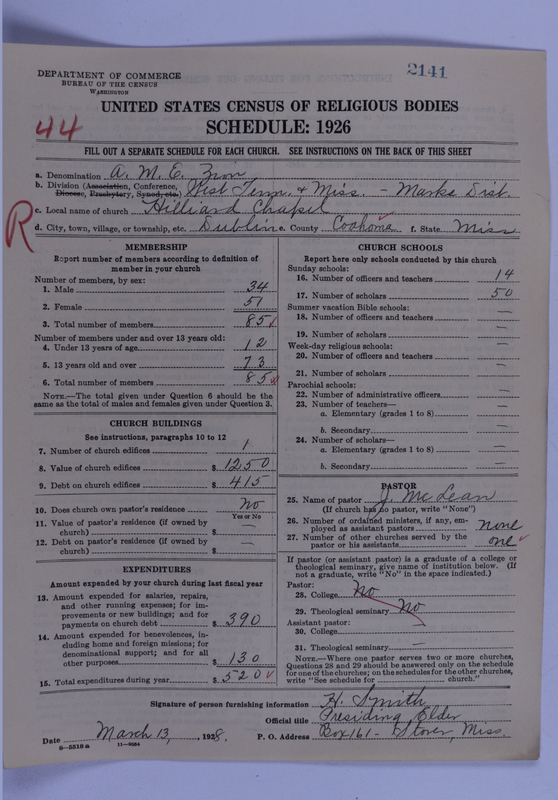 2141
DEPARTMENT OF COMMERCE
BUREAU OF THE CENSUS
WASHINGTON
UNITED STATES CENSUS OF RELIGIOUS BODIES
44
SCHEDULE: 1926
FILL OUT A SEPARATE SCHEDULE FOR EACH CHURCH. SEE INSTRUCTIONS ON THE BACK OF THIS SHEET
a. Denomination A. M. E. Zion
b. Division (Association, Conference, Diocese, Presbytery, Synod, etc.) West Tenn. & Miss. - Marks Dist.
R
c. Local name of church Hilliard Chapel
d. City, town, village, or township, etc. Dublin e. County Coahoma f. State Miss
MEMBERSHIP
Report number of members according to definition of
member in your church
Number of members, by sex:
1. Male 34
2. Female 51
3. Total number of members 85
Number of members under and over 13 years old:
4. Under 13 years of age 12
5. 13 years old and over 73
6. Total number of members 85
NOTE.—The total given under Question 6 should be the
same as the total of males and females given under Question 3.
CHURCH BUILDINGS
See instructions, paragraphs 10 to 12
7. Number of church edifices 1
8. Value of church edifices $1250
9. Debt on church edifices $415
10. Does church own pastor's residence? No
Yes or No
11. Value of pastor's residence (if owned by
church) $ —
12. Debt on pastor's residence (if owned by
church) $ —
EXPENDITURES
Amount expended by your church during last fiscal year
13. Amount expended for salaries, repairs,
and other running expenses; for im-
provements or new buildings; and for
payments on church debt $390
14. Amount expended for benevolences, in-
cluding home and foreign missions; for
denominational support; and for all
other purposes $130
15. Total expenditures during year $520
CHURCH SCHOOLS
Report here only schools conducted by this church
Sunday schools:
16. Number of officers and teachers 14
17. Number of scholars 50
Summer vacation Bible schools:
18. Number of officers and teachers —
19. Number of scholars —
Week-day religious schools:
20. Number of officers and teachers —
21. Number of scholars —
Parochial schools:
22. Number of administrative officers —
23. Number of teachers—
a. Elementary (grades 1 to 8) —
b. Secondary —
24. Number of scholars—
a. Elementary (grades 1 to 8) —
b. Secondary —
PASTOR
25. Name of pastor J. McLean
(If church has no pastor, write "None")
26. Number of ordained ministers, if any, em-
ployed as assistant pastors none
27. Number of other churches served by the
pastor or his assistants one
If pastor (or assistant pastor) is a graduate of a college or
theological seminary, give name of institution below. (If
not a graduate, write "No" in the space indicated.)
Pastor:
28. College No
29. Theological seminary No
Assistant pastor:
30. College —
31. Theological seminary —
NOTE.—Where one pastor serves two or more churches,
Questions 28 and 29 should be answered only on the schedule
for one of the churches; on the schedules for the other churches,
write "See schedule for church."
Signature of person furnishing information H. Smith
Official title Presiding Elder
Date March 13, 1928. P. O. Address Box 161 - Stover, Miss.
8-5518a 11-9564